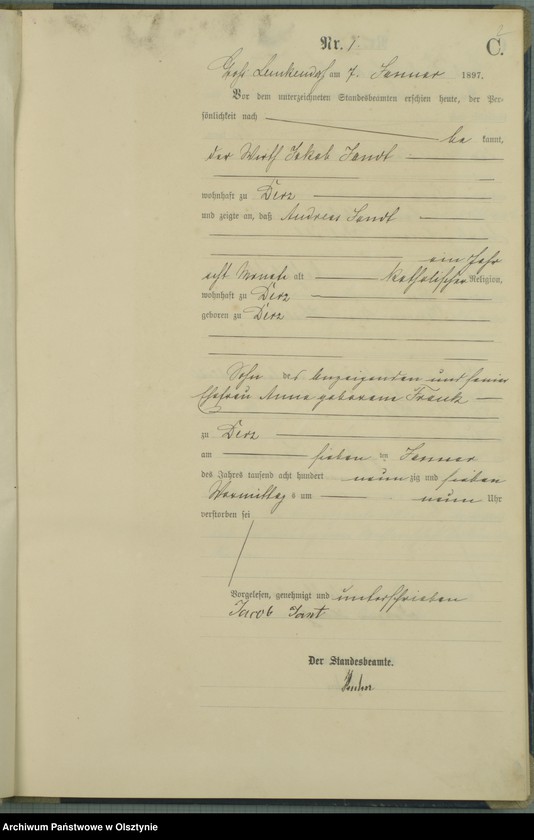 Nr. 1.
C.
Groß Lemkendorf am 7. Januar 1897.
Vor dem unterzeichneten Standesbeamten erschien heute, der Per-
sönlichkeit nach
be kannt,
der Wirth Jakob Jandt
wohnhaft zu Derz
und zeigte an, daß Andreas Jandt
ein Jahr
acht Monate alt katholischer Religion,
wohnhaft zu Derz
geboren zu Derz
Sohn des Anzeigenden und seiner
Ehefrau Anna geborenen
zu Derz
am sieben ten Januar
des Jahres tausend acht hundert neun zig und sieben
Vormittags um neun Uhr
verstorben sei
Vorgelesen, genehmigt und unterschrieben
Jacob Jant
Der Standesbeamte.
Archiwum Państwowe w Olsztynie